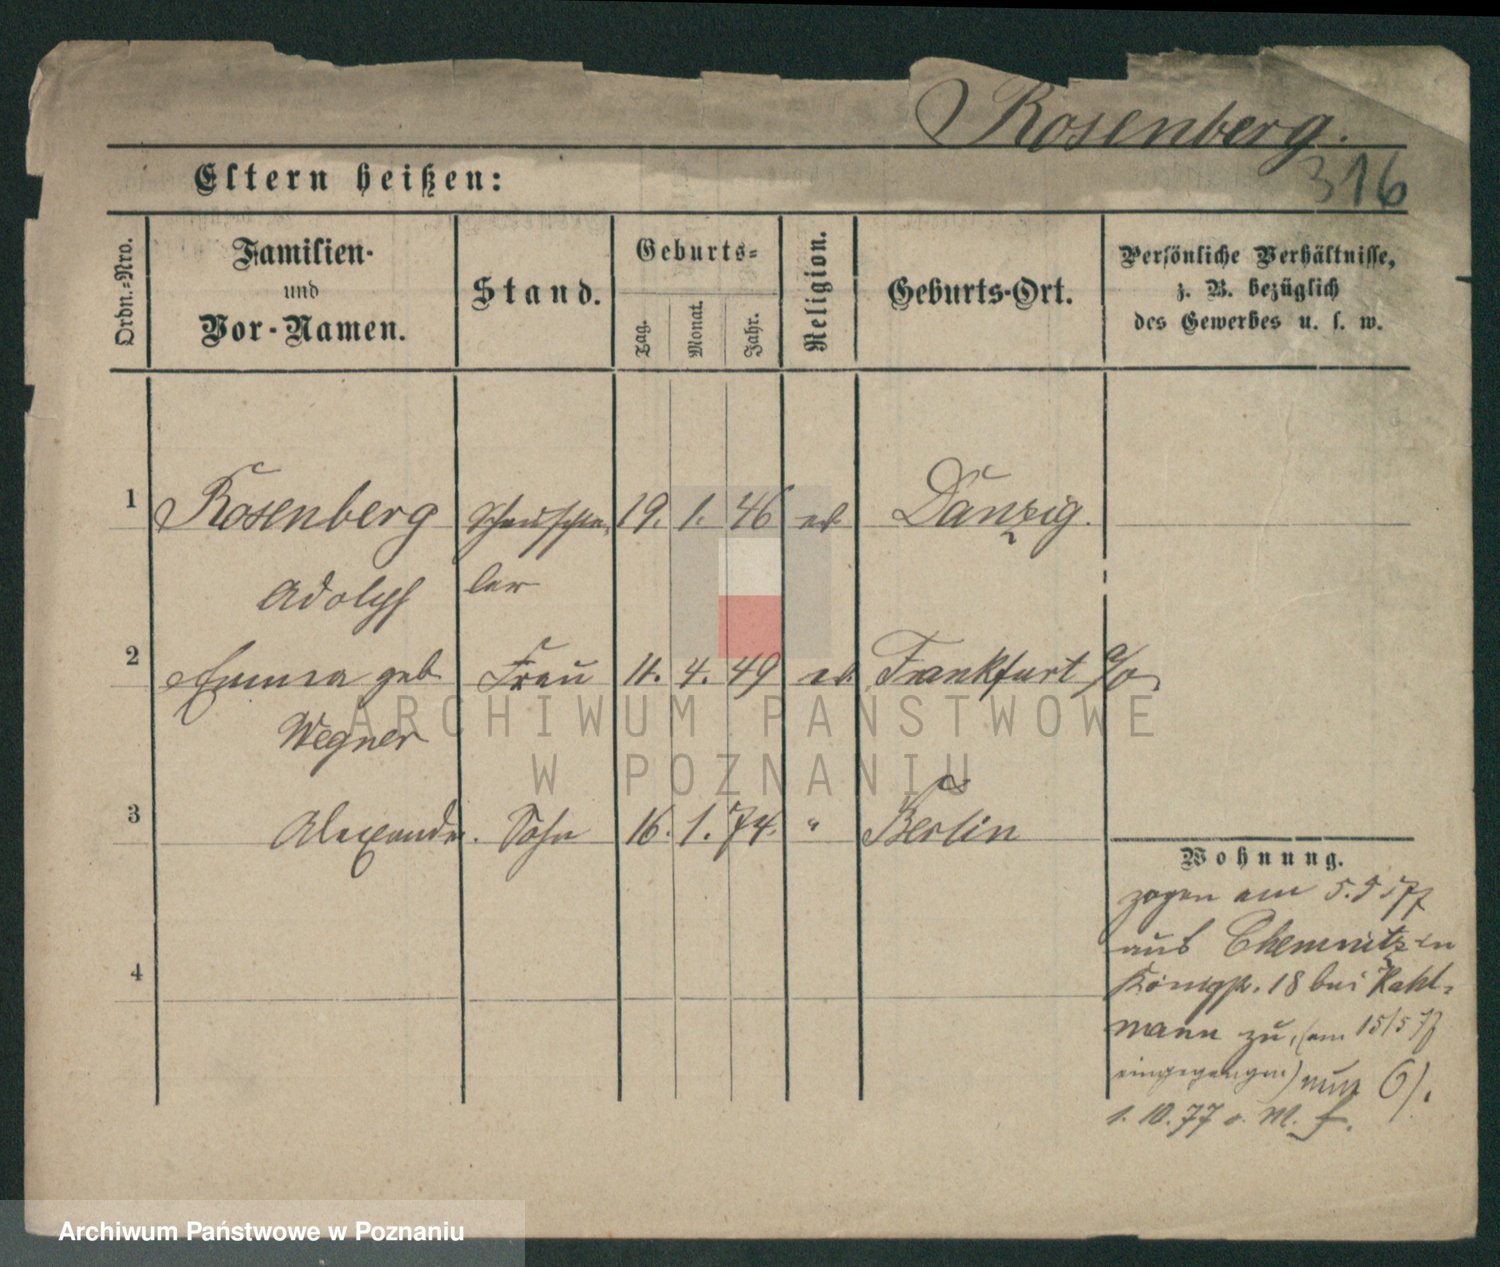 Rosenberg.
Eltern heißen:
316
Ordn.-Nro.
Familien-
und
Vor-Namen.
Stand.
Geburts-
Tag.
Monat.
Jahr.
Religion.
Geburts-Ort.
Persönliche Verhältnisse,
z. B. bezüglich
des Gewerbes u. s. w.
1 Rosenberg Schauspie- 19. 1. 46 ev Danzig.
Adolph ler
2 Emma geb Frau 11. 4. 49 ev. Frankfurt a/o
Wegner
3 Alexander. Sohn 16. 1. 74. " Berlin
4
Wohnung.
zogen am 5. 5 77
aus Chemnitz in
Königstr. 18 bei Kahl-
mann zu, (am 15/5 77
eingegangen)
1. 10. 77
ARCHIWUM PAŃSTWOWE
W POZNANIU
Archiwum Państwowe w Poznaniu